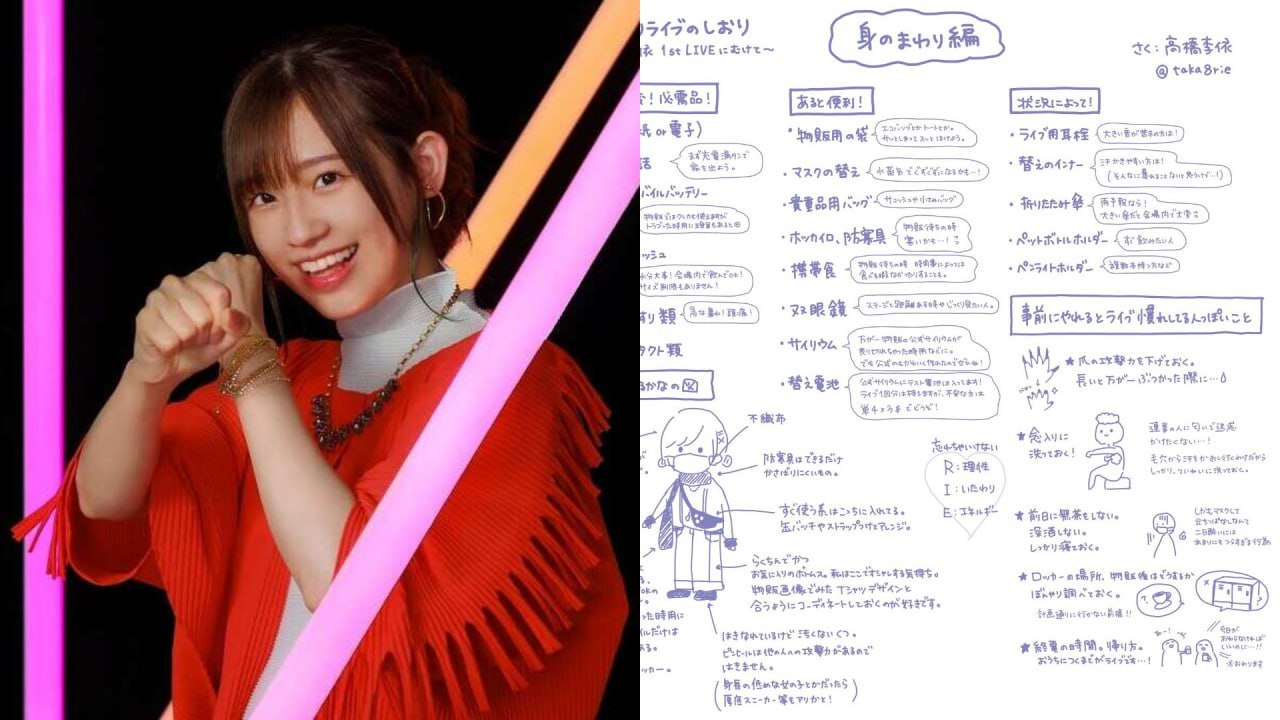 ライブのしおり
依 1st LIVEにむけて〜
身のまわり編
さく：高橋李依
@taka8rie
！必需品！
紙 or 電子）
話
まず充電満タンで
家を出よう。
バイルバッテリー
ッシュ
水分大事！会場内で飲んでOK！
サイズ制限もありません！
すり類
急な暴れ！頭痛！
タクト類
あると便利！
・物販用の袋
エコバッグとかトートとか。
サッとしまってスッとはけよう。
・マスクの替え
水蒸気でぐずぐずになるかも…！
・貴重品用バッグ
サコッシュや小さめバッグ
・ホッカイロ、防寒具
物販待ちの時
寒いかも…！
・携帯食
物販待ちの時 時間帯によっては
食べる暇などがなかったりすることも。
・双眼鏡
ステージと距離ある時やじっくり見たい人。
・サイリウム
万が一物販の公式サイリウムが
売り切れちゃった時用などに。
でも公式のもかわいく作れたのでぜひね！
・替え電池
公式サイリウムにテスト電池は入ってます！
ライブ1回分は持ちますが、不安な方は
単4×3までどうぞ！
状況によって！
・ライブ用耳栓
大きい音が苦手の方は！
・替えのインナー
汗かきやすい方は！
（そんなに暴れることないと思うけど…！）
・折りたたみ傘
雨予報なら！
大きい傘だと会場内で大変
・ペットボトルホルダー
すぐ飲みたい人
・ペンライトホルダー
複数本持つ方など
事前にやれるとライブ慣れしてる人っぽいこと
★爪の攻撃力を下げておく。
長いと万が一ぶつかった際に…
★念入りに
洗っておく！
連番の人に匂いで迷惑
かけたくない…！
毛穴から汗をかきにいくわけだから
しっかり、ていねいに洗っておく。
★前日に無茶をしない。
深酒しない。
しっかり寝ておく。
しかもマスクして
立ちっぱなしなんて
二日酔いには
あまりにもつらすぎる行為
★ロッカーの場所、物販後はどうするか
ぼんやり調べておく。
計画通りに行かない前提！！
★終演の時間。帰り方。
おうちにつくまでがライブです…！
今日が
おわらなければ
いいのに…！！
※おわります
るかなの図
不織布
防寒具はできるだけ
かさばりにくいもの。
すぐ使う系はこっちに入れてる。
缶バッチやストラップつけてアレンジ。
らくちんでかつ
お気に入りのボトムス。私はここでオシャレする気持ち。
物販画像でみたTシャツデザインと
合うようにコーディネートしておくのが好きです。
はきなれているけど汚くないくつ。
ピンヒールは他の人への攻撃力があるので
はきません。
（身長の低めな女の子とかだったら
厚底スニーカー等もアリかと！）
忘れちゃいけない
R：理性
I：いたわり
E：エネルギー
OKの
った時用に
ルだけは
ある。
ッカー。